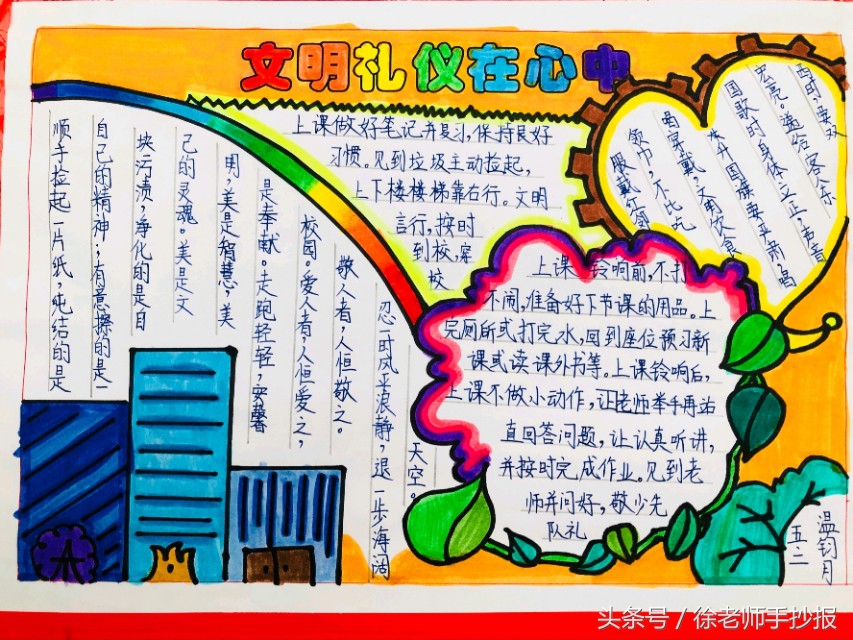 文明礼仪在心中
顺手捡起一片纸,纯结的是
自己的精神;有意擦的是一
块污渍,净化的是自
己的灵魂。美是文
明,美是智慧,美
是奉献。走跑轻轻,安馨
校园。爱人者,人恒爱之,
敬人者,人恒敬之。
忍一时风平浪静,退一步海阔
天空。
上课做好笔记并复习,保持良好
习惯。见到垃圾主动捡起,
上下楼楼梯靠右行。文明
言行,按时
到校,穿
校
服戴红领
领巾,不比吃
喝穿戴,文明饮食
升国旗要严肃,唱
国歌时身体立正,声音
宏亮。递给客人东
西时,要双
上课铃响前,不打
不闹,准备好下节课的用品。上
完厕所或打完水,回到座位预习新
课或读课外书等。上课铃响后,
上课不做小动作,让老师举手再站
直回答问题,让认真听讲,
并按时完成作业。见到老
师并问好,敬少先
队礼
温钧月
五二
头条号 / 徐老师手抄报